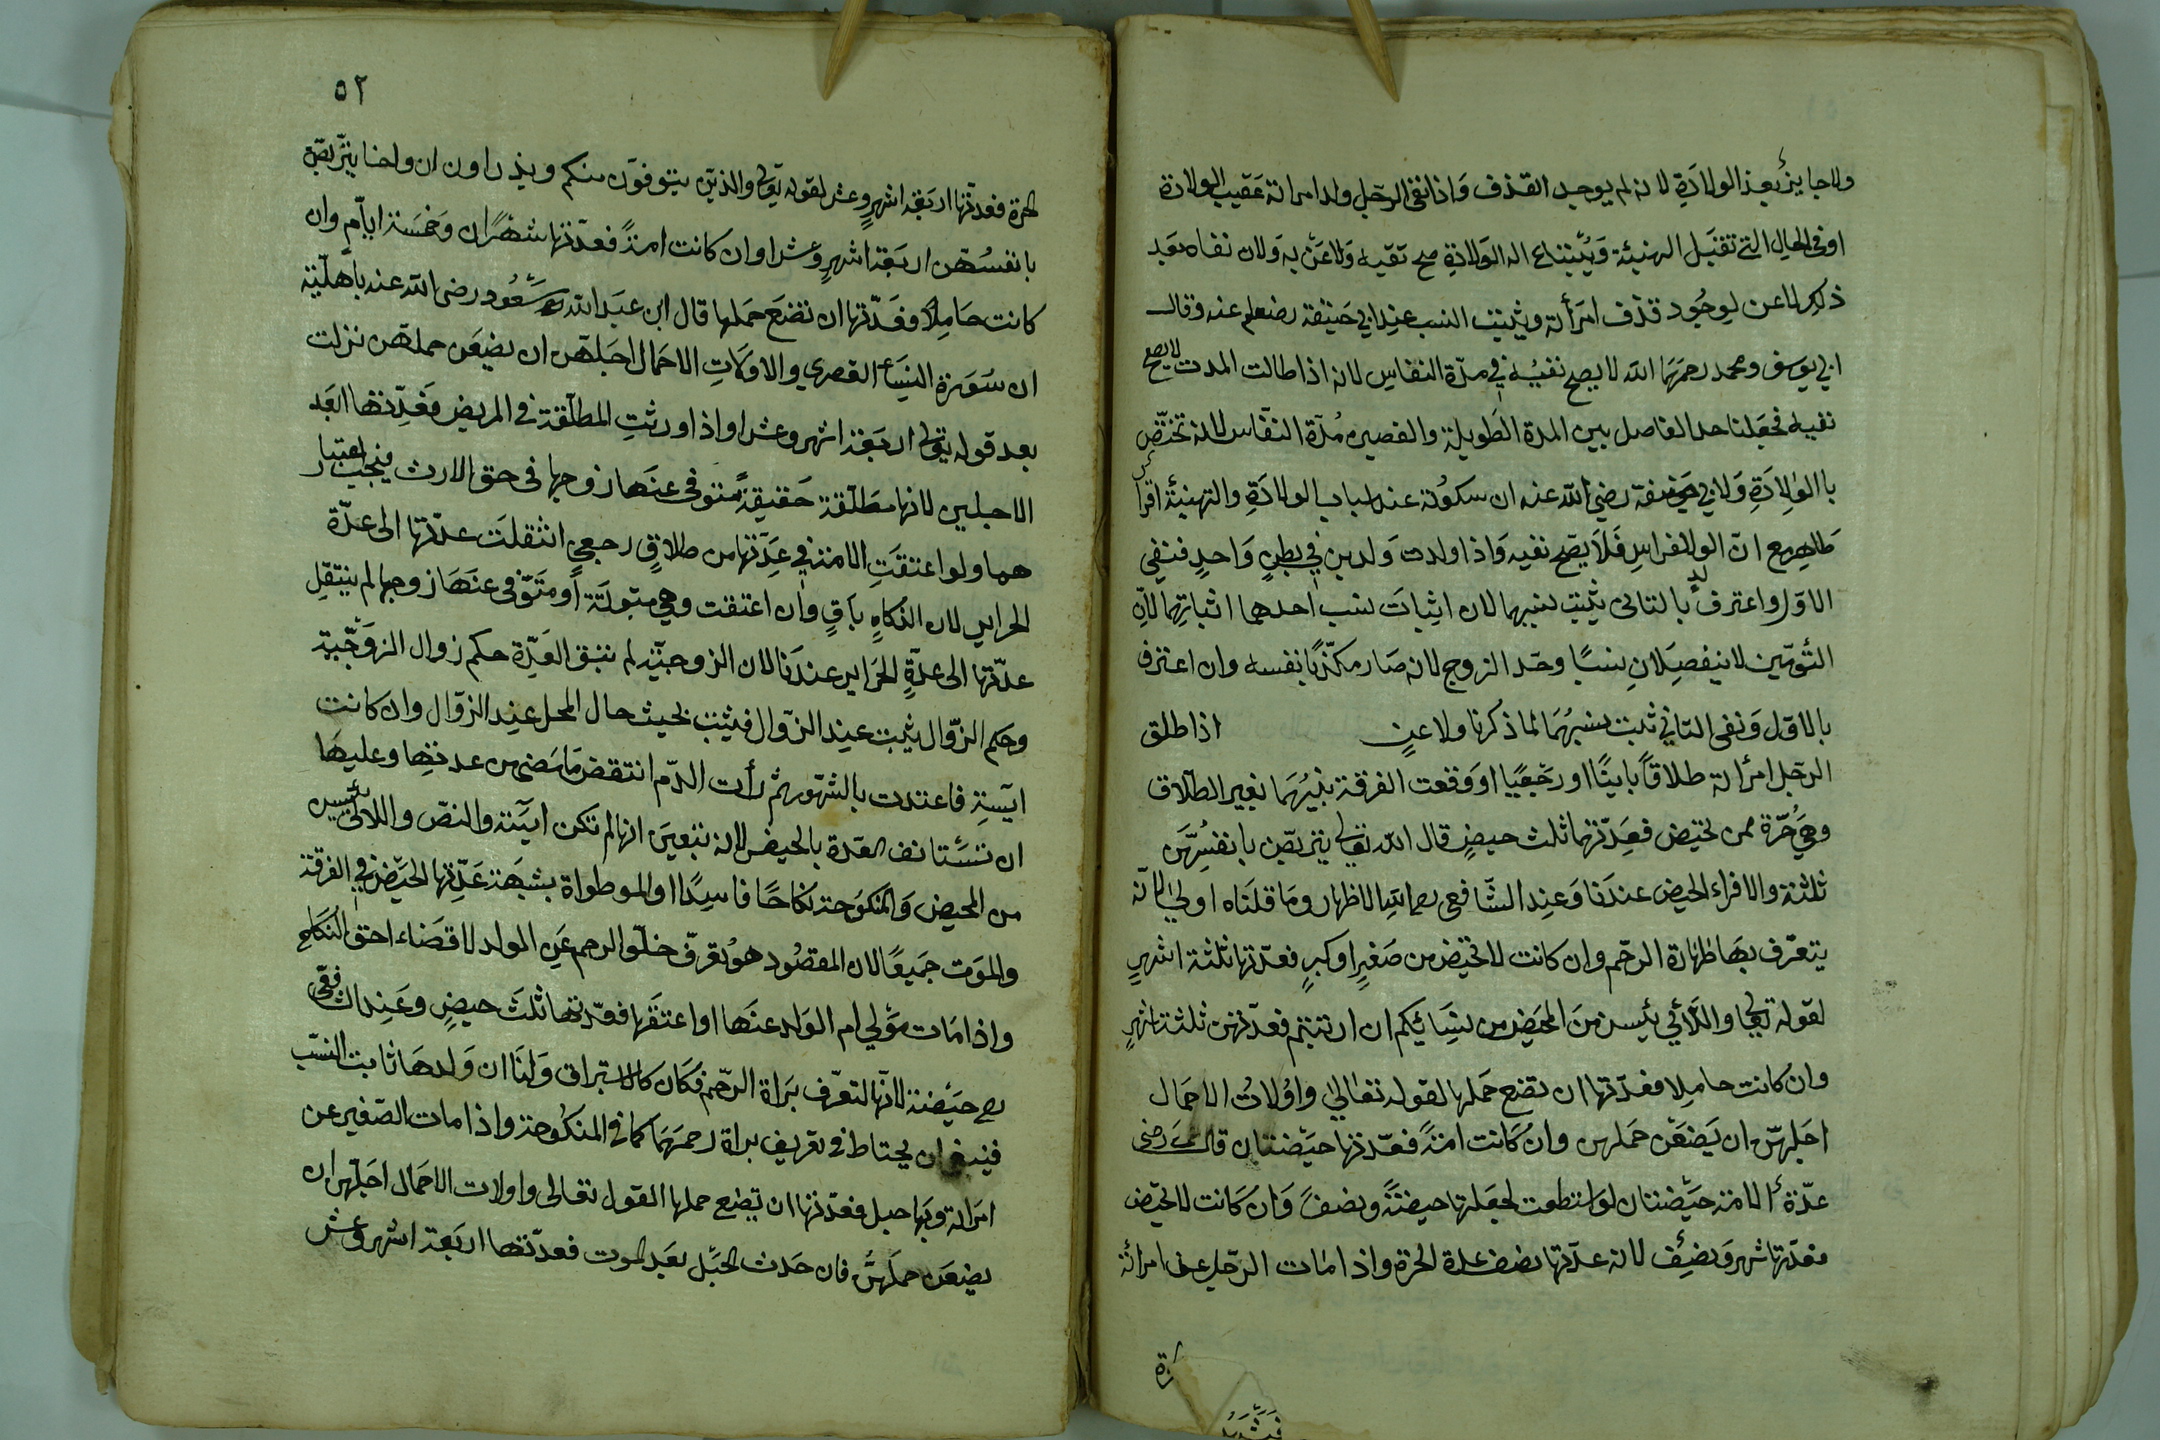 ولا جايز بعد الولادة لانه لم يوجد القذف واذا نفى الرجل ولد امراته عقيب الولادة
او في الحال التي تقبل الهنيئة ويبتاع اله الولادة صح نفيه ولاعن به ولان نفاه بعد
ذلك لاعن لوجود قذف امرأته ويثبت النسب عند ابي حنيفة رضي الله عنه وقال
ابي يوسف ومحمد رحمهما الله لا يصح نفيه في مدة النفاس لانه اذا طالت المدت لا يصح
نفيه فجعلنا حد الفاصل بين المدة الطويلة والقصيرة مدة النفاس لانه تختص
باالولادة ولابي حنيفة رضي الله عنه ان سكوته عند اسباب الولادة والتهنئة اقرار
ظاهر مع ان الولد لفراس فلا يصح نفيه واذا ولدت ولدين في بطن واحد فنفى
الاول واعترف بالتانى يثبت نسبهما لان اثبات نسب احدهما اثباتهما لان
التؤمين لا ينفصلان نسبا وحد الزوج لانه صار مكذبا نفسه وان اعترف
بالاول ونفى الثاني ثبت نسبهما لما ذكرنا ولاعن اذا طلق
الرجل امرأته طلاقا باينا او رجعيا او وقعت الفرقة بينهما بغير الطلاق
وهي حرة ممن تحيض فعدتها ثلث حيض قال الله تعالى يتربصن بانفسهن
ثلثة والاقراء الحيض عندنا وعند الشافعي رحمه الله الاظهار وما قلناه اولى لانه
يتعرف بها طهارة الرحم وان كانت لا تحيض من صغر او كبر فعدتها ثلثة اشهر
لقوله تعالى واللائي يئسن من المحيض من نسائكم ان ارتبتم فعدتهن ثلثة اشهر
وان كانت حاملا فعدتها ان تضع حملها لقوله تعالى واولات الاحمال
اجلهن ان يضعن حملهن وان كانت امة فعدتها حيضتان قال عمر رضى
عدة الامة حيضتان لو استطعت لجعلتها حيضة ونصف وان كانت لا تحيض
فعدتها شهر ونصف لانه عدتها نصف عدة الحرة واذا مات الرجل عن امرأته
٥٢
الحرة فعدتها اربعة اشهر وعشر لقوله تعالى والذين يتوفون منكم ويذراون ان واحنا يتربصن
بانفسهن اربعة اشهر وعشرا وان كانت امة فعدتها شهران وخمسة ايام وان
كانت حاملا فعدتها ان تضع حملها قال ابن عبد الله مسعود رضى الله عنه باهليه
ان سورة النساء القصرى والاولات الاحمال اجلهن ان يضعن حملهن نزلت
بعد قوله تعالى اربعة اشهر وعشرا واذا ورثت المطلقة في المريض فعدتها ابعد
الاجلين لانها مطلقة حقيقة متوفى عنها زوجها فى حق الارث فيجب اعتبار
هما ولو اعتقت الامة في عدتها من طلاق رجعي انتقلت عدتها الى عدة
الحراير لان النكاح باق وان اعتقت وهي مبتوتة او متوفى عنها زوجها لم ينتقل
عدتها الى عدة الحراير عندنا لان الزوجية لم تبق العدة حكم زوال الزوجية
وحكم الزوال يثبت عند الزوال فيثبت بحيث حال المحل عند الزوال وان كانت
ايسة فاعتدت بالشهور ثم رأت الدم انتقض ما مضى من عدتها وعليها
ان تستانف العدة بالحيض لانه تبعين انها لم تكن ايسة والنص واللائي يئسن
من المحيض والمنكوحة نكاحا فاسدا او الموطواة بشبهة عدتها الحيض في الفرقة
والموت جميعا لان المقصود هو تعرف خلو الرحم عن الولد لا قضاء احق النكاح
واذا مات مولي ام الولد عنها او اعتقها فعدتها ثلث حيض وعند الشافعى
رح حيضة لانها لتعرف براة الرحم فكان كالاستبراق ولنا ان ولدها ثابت النسب
فينبغي ان يحتاط في تعريف براة رحمهما كما في المنكوحة واذا مات الصغير عن
امراته وبها حبل فعدتها ان تضع حملها القول تعالى واولات الاحمال اجلهن ان
يضعن حملهن فان حدث الحبل بعد الموت فعدتها اربعة اشهر وعشر